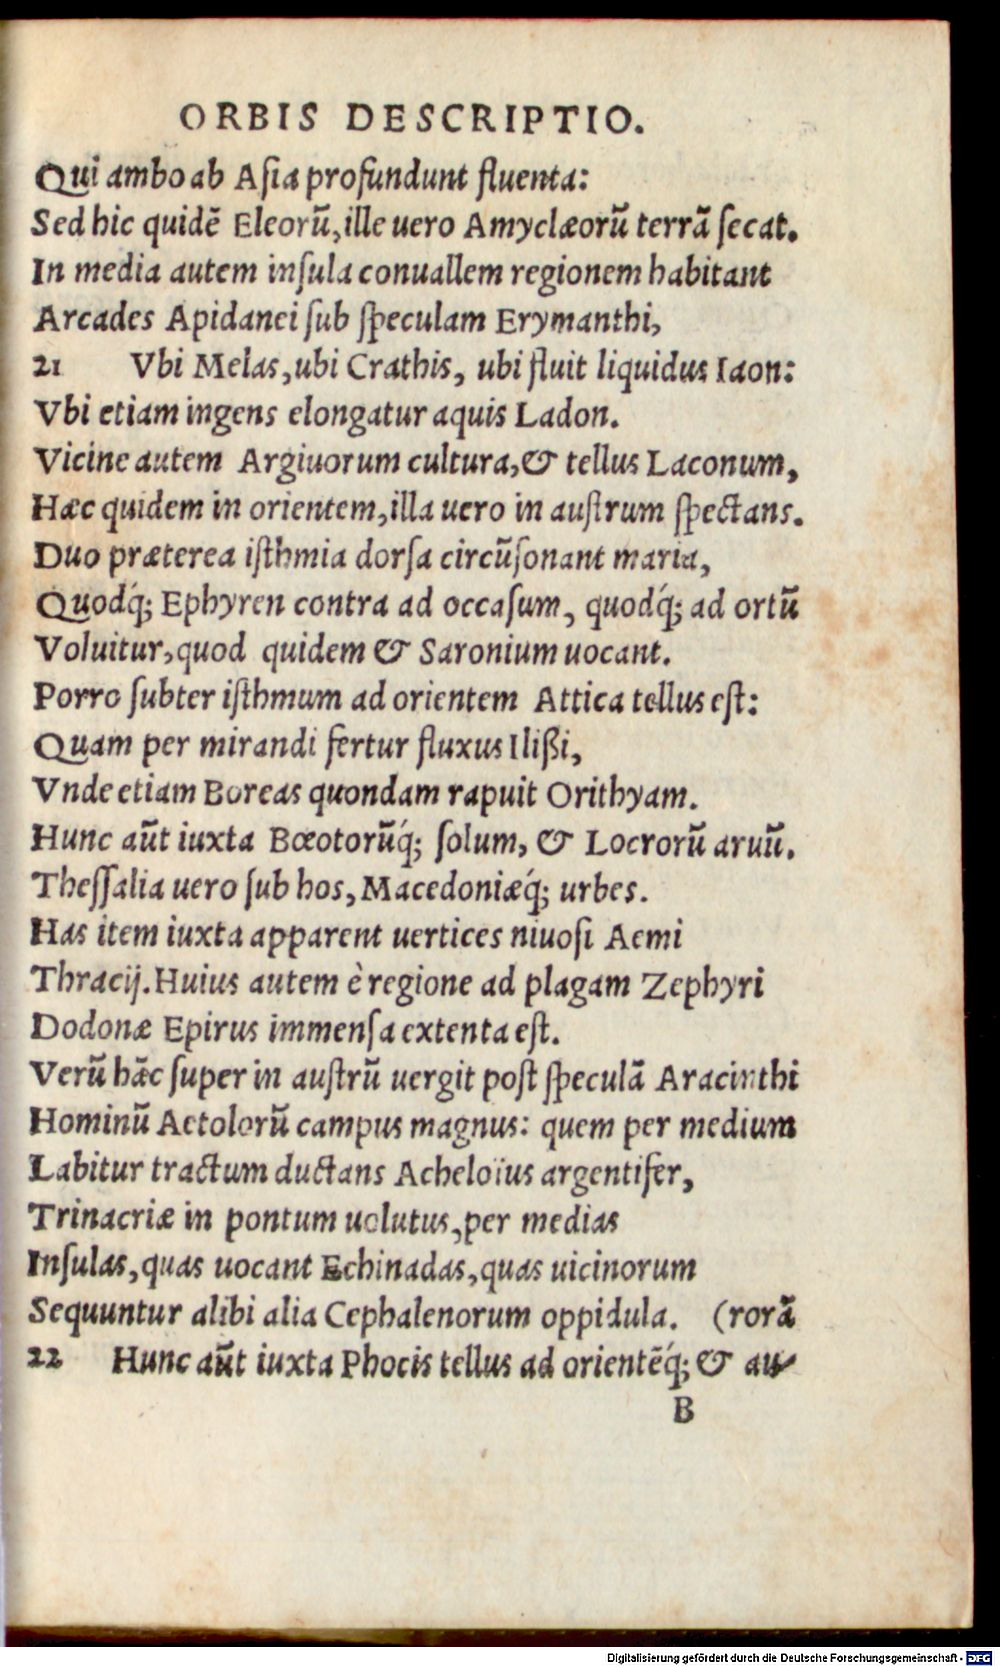 ORBIS DESCRIPTIO.
Qui ambo ab Asia profundunt fluenta:
Sed hic quidē Eleorū, ille uero Amyclæorū terrā secat.
In media autem insula conuallem regionem habitant
Arcades Apidanei sub speculam Erymanthi,
21 Vbi Melas, ubi Crathis, ubi fluit liquidus Iaon:
Vbi etiam ingens elongatur aquis Ladon.
Vicine autem Argiuorum cultura, & tellus Laconum,
Hæc quidem in orientem, illa uero in austrum spectans.
Duo præterea isthmia dorsa circūsonant maria,
Quodq́; Ephyren contra ad occasum, quodq́; ad ortū
Voluitur, quod quidem & Saronium uocant.
Porro subter isthmum ad orientem Attica tellus est:
Quam per mirandi fertur fluxus Ilißi,
Vnde etiam Boreas quondam rapuit Orithyam.
Hunc aūt iuxta Bœotorūq́; solum, & Locrorū aruū.
Thessalia uero sub hos, Macedoniæq́; urbes.
Has item iuxta apparent uertices niuosi Aemi
Thracij. Huius autem è regione ad plagam Zephyri
Dodonæ Epirus immensa extenta est.
Verū hāc super in austrū uergit post speculā Aracinthi
Hominū Aetolorū campus magnus: quem per medium
Labitur tractum ductans Acheloïus argentifer,
Trinacriæ in pontum uolutus, per medias
Insulas, quas uocant Echinadas, quas uicinorum
Sequuntur alibi alia Cephalenorum oppidula. (rorā
22 Hunc aūt iuxta Phocis tellus ad orientēq́; & au-
B
Digitalisierung gefördert durch die Deutsche Forschungsgemeinschaft - DFG